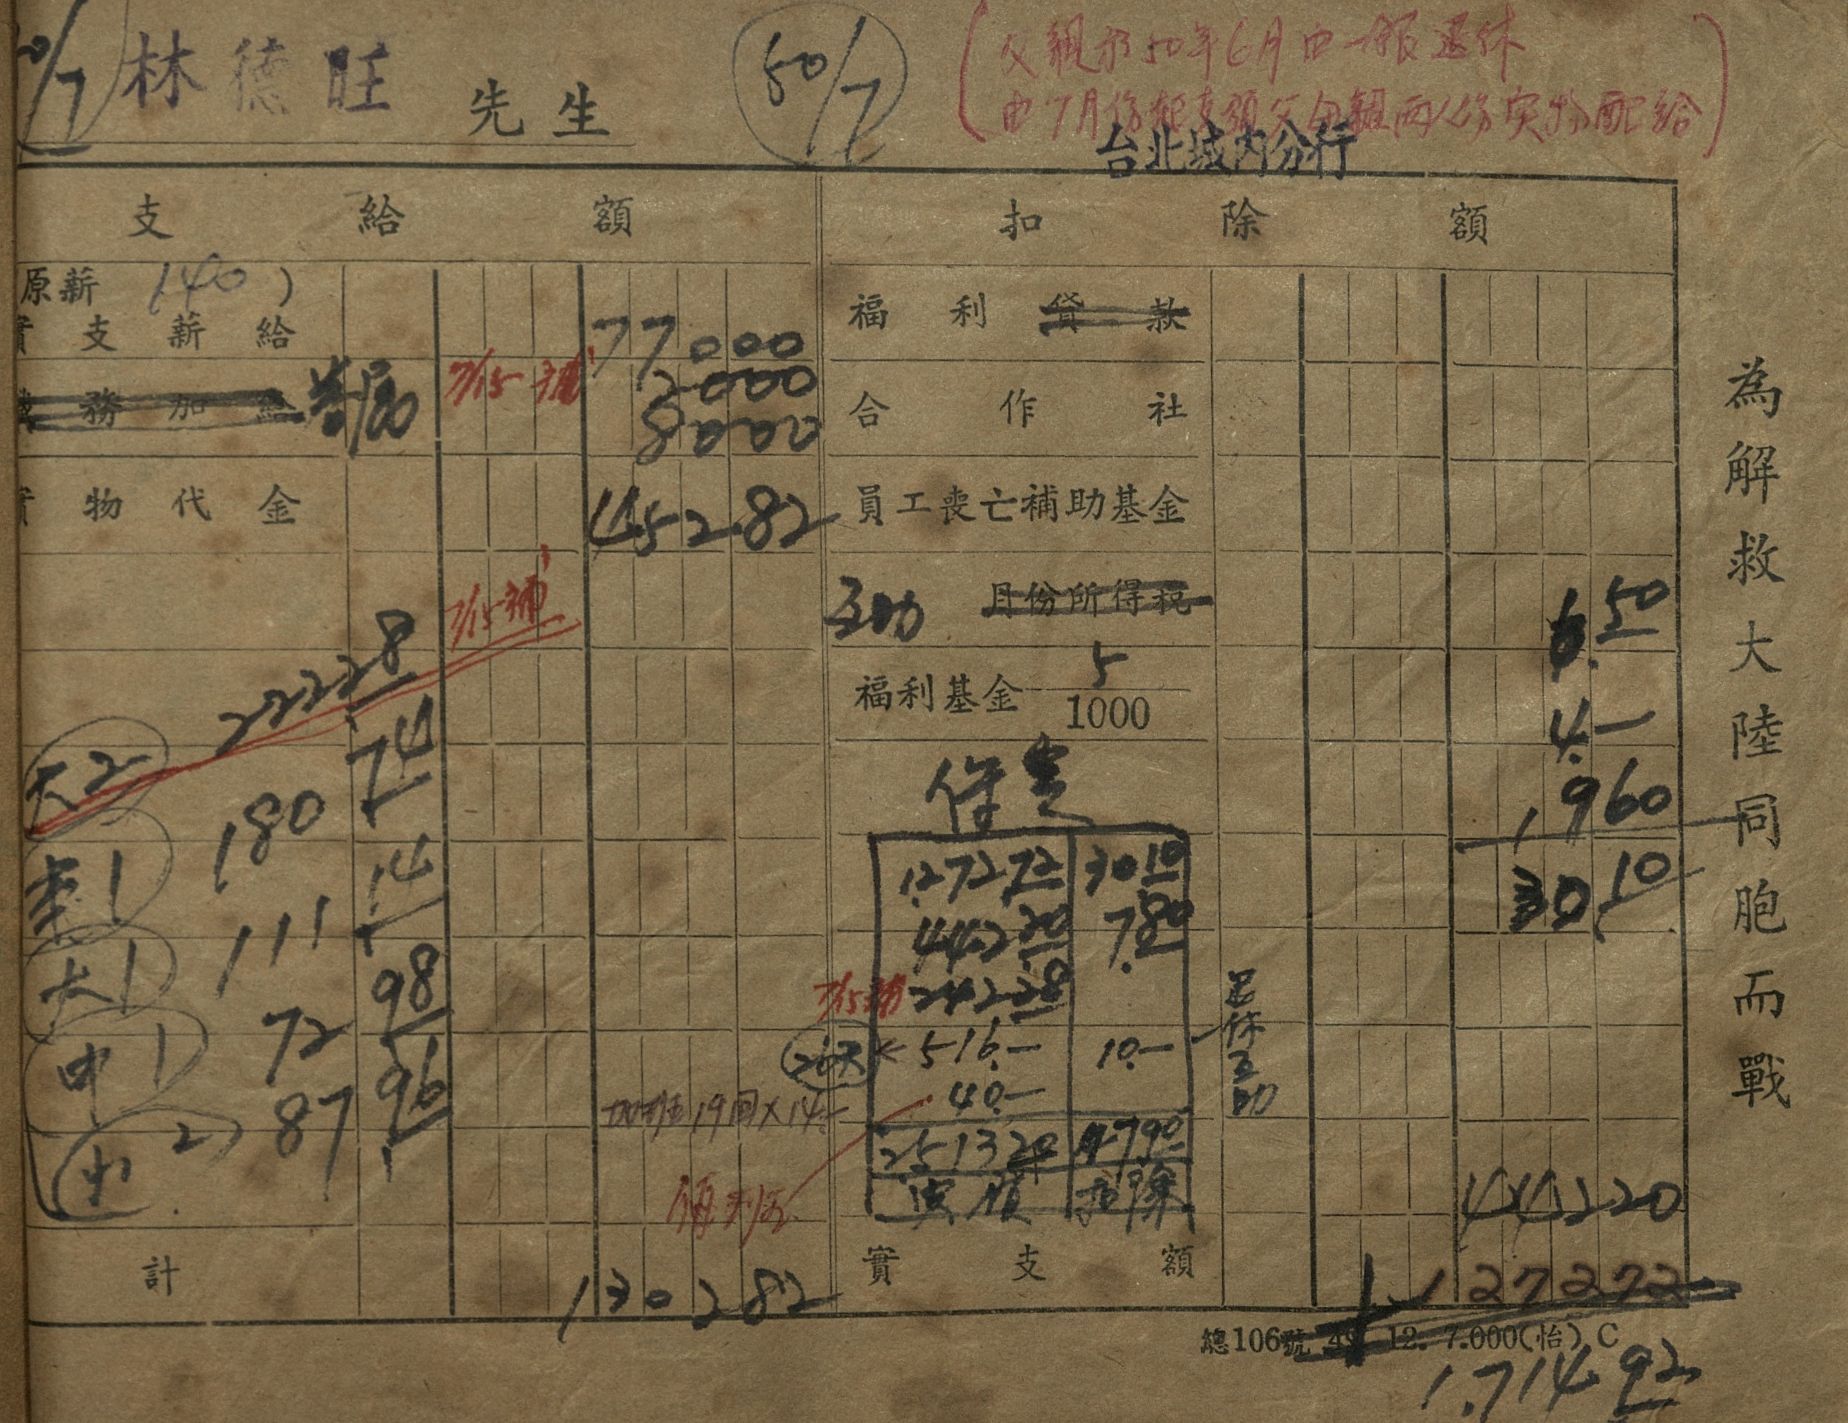 50/7 林德旺 先生 50/7
父親於50年6月由一銀退休
由7月份起支領父母親兩人份實物配給
台北城內分行
支給額 扣除額
原薪 140 )
實支薪給 77000
福利貸款
2000
職務加給 眷屬 7/15補 8000
合作社
實物代金 45282
員工喪亡補助基金
7/15補
互助 月份所得稅 6.50
福利基金 5/1000 4.—
保室 1960
30 10
大2 22228
74
180
大1 111 14
中1 72 98
小2 87 96
1,272.72 30.10
442.20 7.80
7/15補 242.28
26天 516.— 10.— 退休互助
加班19回×14.— 40.—
2513.20 47.90
實領 扣除
44220
計 130282
實支額 127272
總106號 49. 12. 7.000(怡) C
1.714.92
為解救大陸同胞而戰